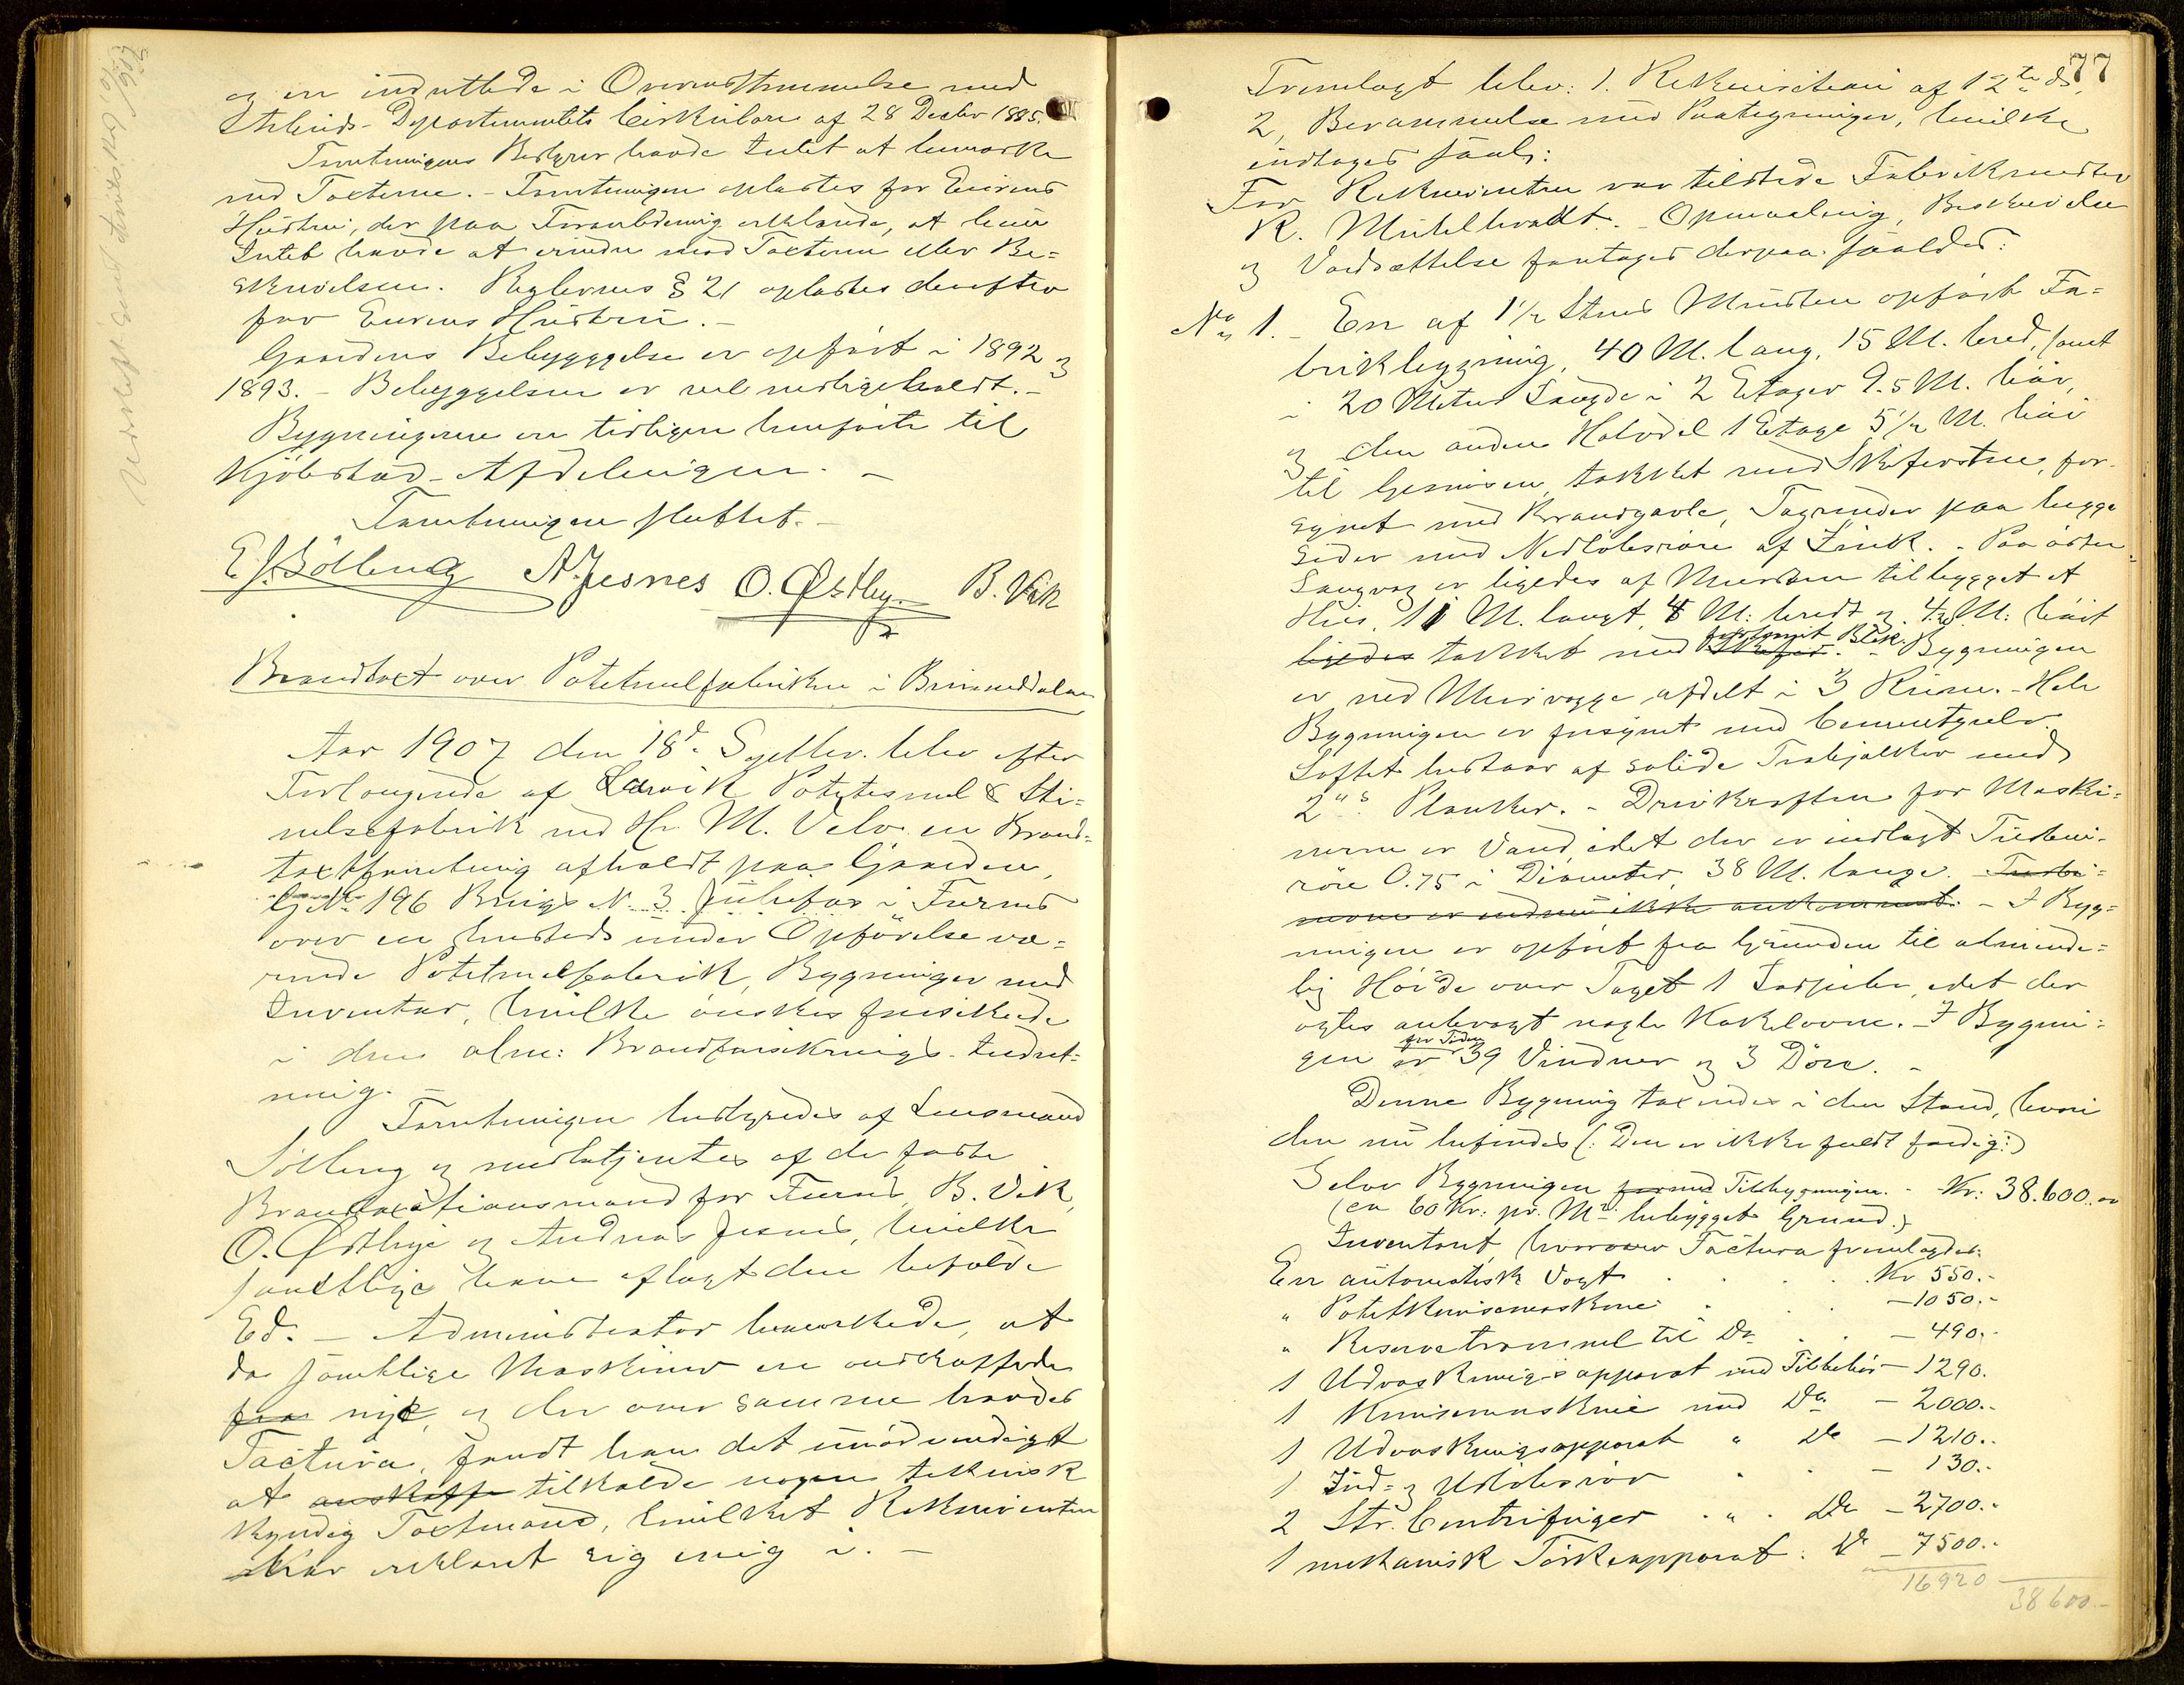 og er indrettede i Overensstemmelse med
Arbeids-Departementets Cirkulære af 28 Decbr 1885.
Forretningens Bestyrer havde Intet at bemærke
ved Taxterne. - Forretningen oplæstes for Eierens
Hustru, der paa Foranledning erklærede, at hun
Intet havde at erindre mod Taxterne eller Be=
skrivelsen. Reglernes § 21 oplæstes derefter
for Eierens Hustru. -
Gaardens Bebyggelse er opført i 1892 og
1893. - Bebyggelsen er vel vedligeholdt. -
Bygningerne ere tidligere henførte til
Kjøbstad-Afdelingen. -
Forretningen sluttet. -
E. J. Sölling A. Jesnes O. Østby. B. Vik
Brandtaxt over Potetmelfabriken i Brumunddalen
Aar 1907 den 18de Septbr. blev efter
Forlangende af Larvik Potetesmel & Sti=
velsefabrik ved Hr. M. Velo en Brand=
taxtforretning afholdt paa Gaarden,
G. No 196 Brugs N. 3 Julufos i Furnes
over en hersteds under Opførelse væ=
rende Potetmelfabrik, Bygninger med
Inventar, hvilke ønskes forsikrede
i den alm: Brandforsikrings-Indret=
ning.
Forretningen bestyredes af Lensmand
Sölling og medbetjentes af de faste
Brandtaxationsmænd for Furnes, B. Vik,
O. Østbye og Andreas Jesnes, hvilke
samtlige have aflagt den befalede
Ed. - Administrator bemærkede, at
da samtlige Maskiner ere anskaffede
fra nye, og der over samme havdes
Factura, fandt han det unødvendigt
at anskaffe tilkalde nogen teknisk
kyndig Taxtmand, hvilket Rekvirenten
har erklæret sig enig i. -
77
Fremlagt blev: 1. Rekvisition af 12te ds,
2, Berammelse med Paategninger, hvilke
indtages saal:
For Rekvirenten var tilstede Fabrikmester
R. Mühlbradt. - Opmaaling, Beskrivelse
og Værdsættelse foretages derpaa saaledes:
No 1. - En af 1½ Stens Mursten opført Fa=
brikbygning, 40 M. lang, 15 M. bred, samt
i 20 Meters Længde i 2 Etager 9.5 M. høi,
og den anden Halvdel 1 Etage 5½ M. høi
til Gesimsen, tækket med Skifersten, for=
synet med Brandgavle, Tagrender paa begge
Sider med Nedløbsrøre af Zink. - Paa østre
Langvæg er ligedes af Mursten tilbygget et
Hus, 11 M. langt, 4 M: bredt og 4.20 M: høit
ligedes tækket med Skifer. fortinnet Blik. - Bygningen
er ved Murvægge afdelt i 3 Rum. - Hele
Bygningen er forsynet med Cementgulv.
Loftet bestaar af solide Træbjælker med
2" Planker. - Drivkraften for Maski=
nerne er Vand, idet der er indlagt Turbin=
røre 0.75 i Diameter, 38 M. lange. Turbi=
nerne er endnu ikke ankommet. - I Byg=
ningen er opført fra Grunden til alminde=
lig Høide over Taget 1 Jordpibe, idet der
agtes anbragt nogle Kakelovne. - I Bygnin=
gen er for Tiden 39 Vinduer og 3 Døre. -
Denne Bygning taxeredes i den Stand, hvori
den nu befindes (: Den er ikke fuldt færdig :)
Selve Bygningen med Tilbygningen. - Kr: 38.600.00
(ca 60 Kr: pr. M2 bebygget Grund.)
Inventaret, hvorover Factura fremlagdes.
En automatisk Vægt . . . . Kr 550.-
" Potetknusemaskine . . - 1050.-
" Reservetrommel til Do . . - 490.-
1 Udvaskningsapparat med Tilbehör - 1290.
1 Knusemaskine med Do - 2000.-
1 Udvaskningsapparat " Do - 1210.-
1 Ind= og Udløbsrør . . - 130.-
2 Str. Centrifuger . " . Do - 2700.-
1 mekanisk Tørkeapparat : Do - 7500.-
16920
38600.-